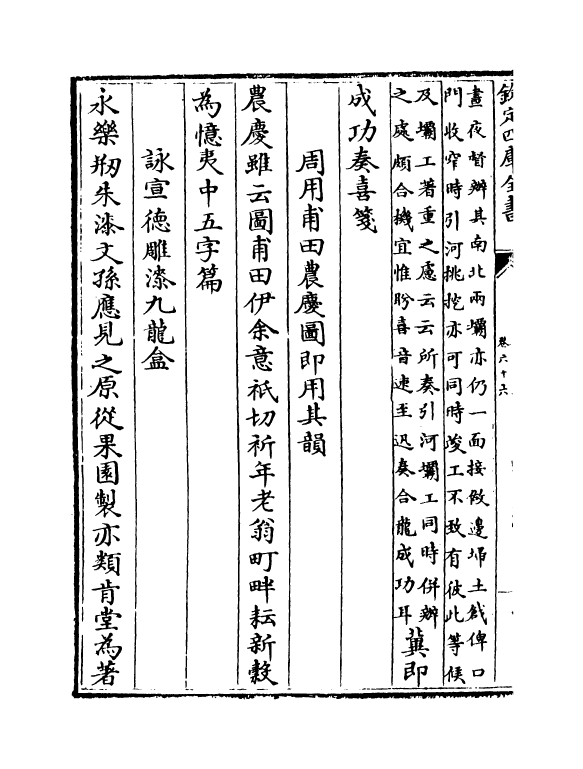 欽定四庫全書
卷六十六
晝夜督辦其南北兩壩亦仍一面接做邊埽土戧俾口
門收窄時引河挑挖亦可同時竣工不致有彼此等候
及壩工著重之慮云云所奏引河壩工同時併辦
之處頗合機宜惟盼喜音速至迅奏合龍成功耳
冀即
成功奏喜箋
周用甫田農慶圖即用其韻
農慶雖云圖甫田伊余意祇切祈年老翁町畔耘新穀
為憶夷中五字篇
詠宣德雕漆九龍盒
永樂剏朱漆文孫應見之原從果園製亦類肯堂為著